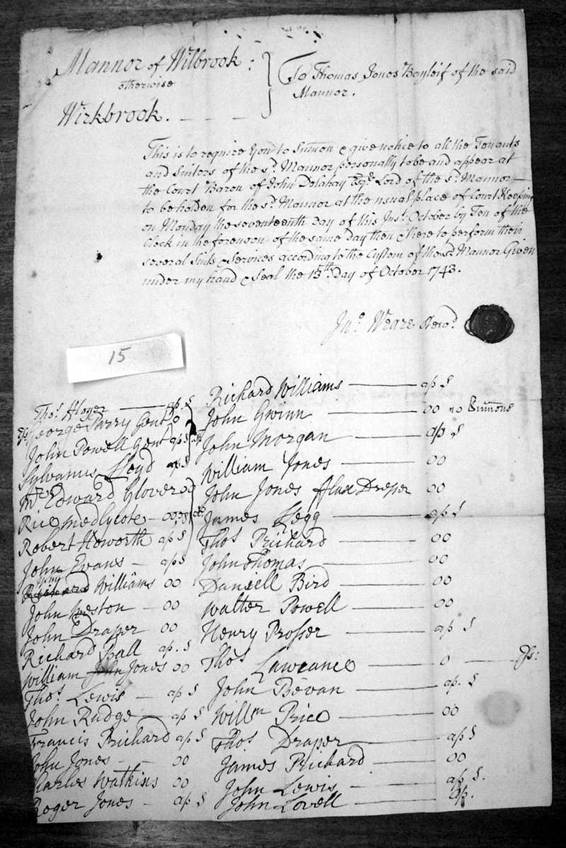 Mannor of Wilbrook
otherwise
Wirkbrook.
To Thomas Jones Bayleif of the said
Mannor.
This is to require You to Sumon & give notice to all the Tenants
and Suitors of the sd. Mannor personally to be and appear at
the Court Baron of John Dalahay Esqr. Lord of the sd. Mannor
to be holden for the sd. Mannor at the usual place of Court Keeping
on Monday the seventeenth day of this Inst. October by Ten of the
Clock in the forenoon of the same day then & there to perform their
several Suits & Services according to the Custom of the sd. Mannor Given
under my hand & Seal the 15th. Day of October 1743.
Jno. Weare Stewd.
15
Thos. ap. S
George Parry Gent
John Powell Gent ap S
Sylvanus Lloyd ap S
Mr. Edward Glover
Rice Medlycote
Robert Howorth ap S
John Evans ap S
Williams 00
John Weston 00
John Draper 00
Richard Hall ap. S
William John Jones 00
Thos. Lewis ap S
John Rudge ap. S
Francis Prichard ap S
John Jones 00
Charles Watkins 00
Roger Jones ap S
Richard Williams ap S
John Gwinn 00 no Sumons
John Morgan ap S
William Jones 00
John Jones Flax Dresser 00
James Legg ap S
Thos. Prichard 00
John Thomas 00
Daniell Bird 00
Walter Powell 00
Henry Prosser ap S
Thos. Lawrance 0
John Bevan ap. S
Willm. Rice 00
Thos. Draper ap. S
James Prichard 00
John Lewis ap S.
John Lovell ap.